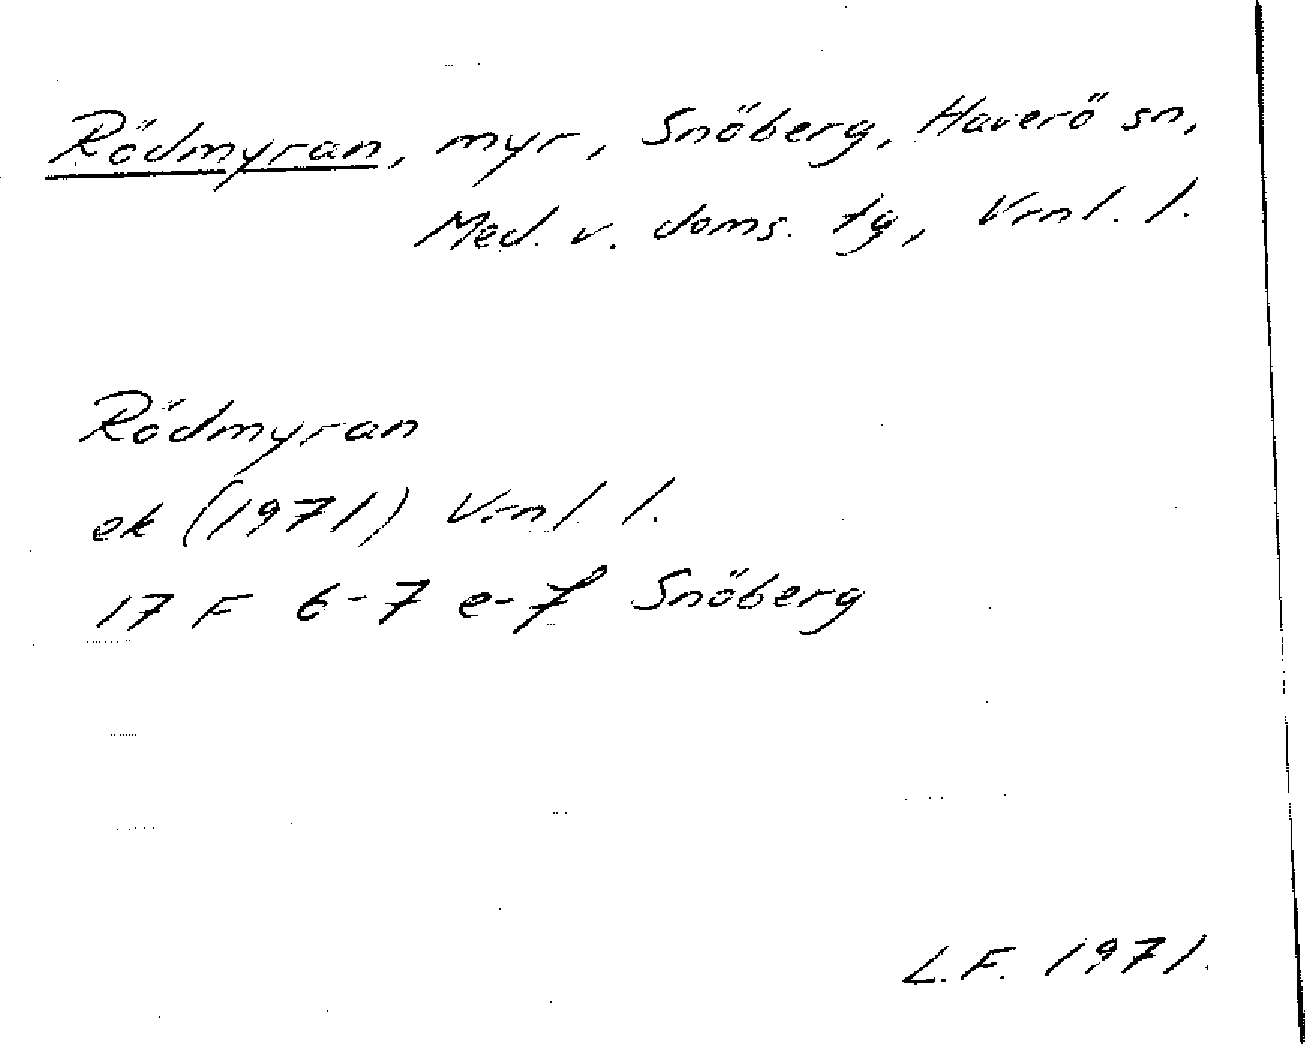 Rödmyran, myr, Snöberg, Haverö sn,
Med. v. doms. tg, Vrnl. l.
Rödmyran
ek (1971) Vrnl. l.
17 F 6-7 e-f Snöberg
L.F. 1971.